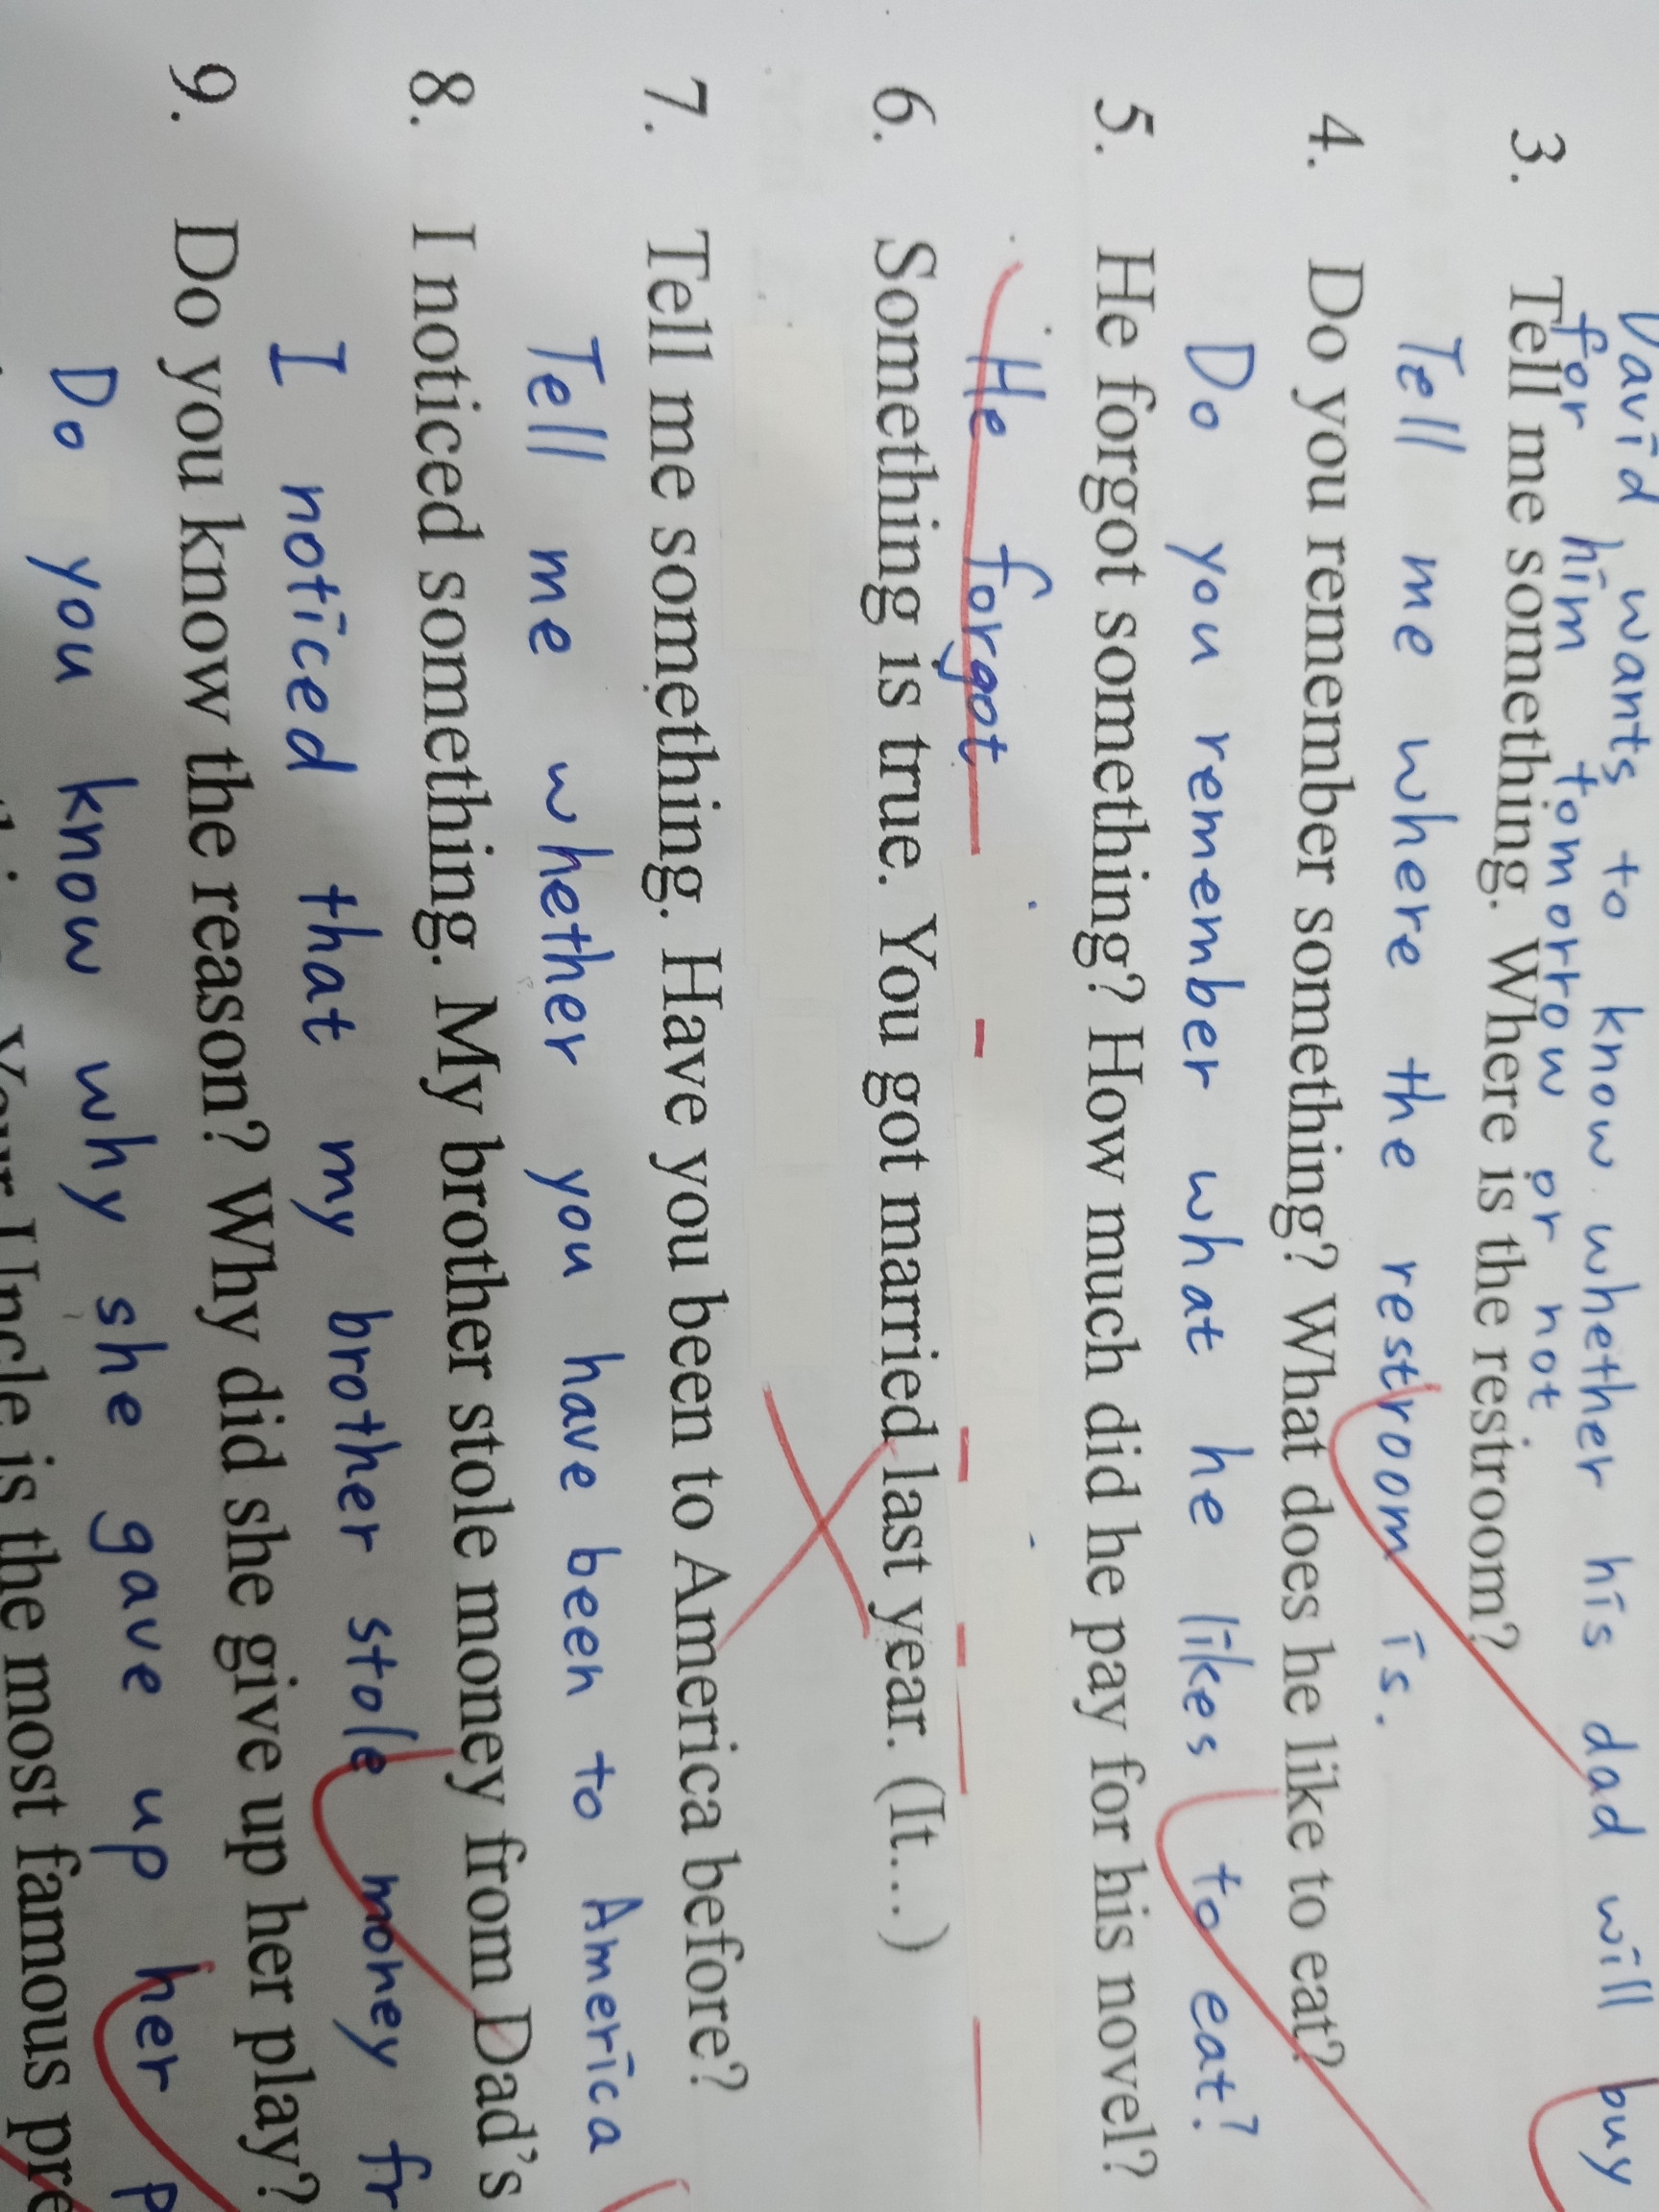 David wants to know whether his dad will buy
for him tomorrow or not.
3. Tell me something. Where is the restroom?
Tell me where the restroom is.
4. Do you remember something? What does he like to eat?
Do you remember what he likes to eat?
5. He forgot something? How much did he pay for his novel?
He forgot
6. Something is true. You got married last year. (It...)
7. Tell me something. Have you been to America before?
Tell me whether you have been to America
8. I noticed something. My brother stole money from Dad's
I noticed that my brother stole money fr
9. Do you know the reason? Why did she give up her play?
Do you know why she gave up her p
Your Uncle is the most famous pre